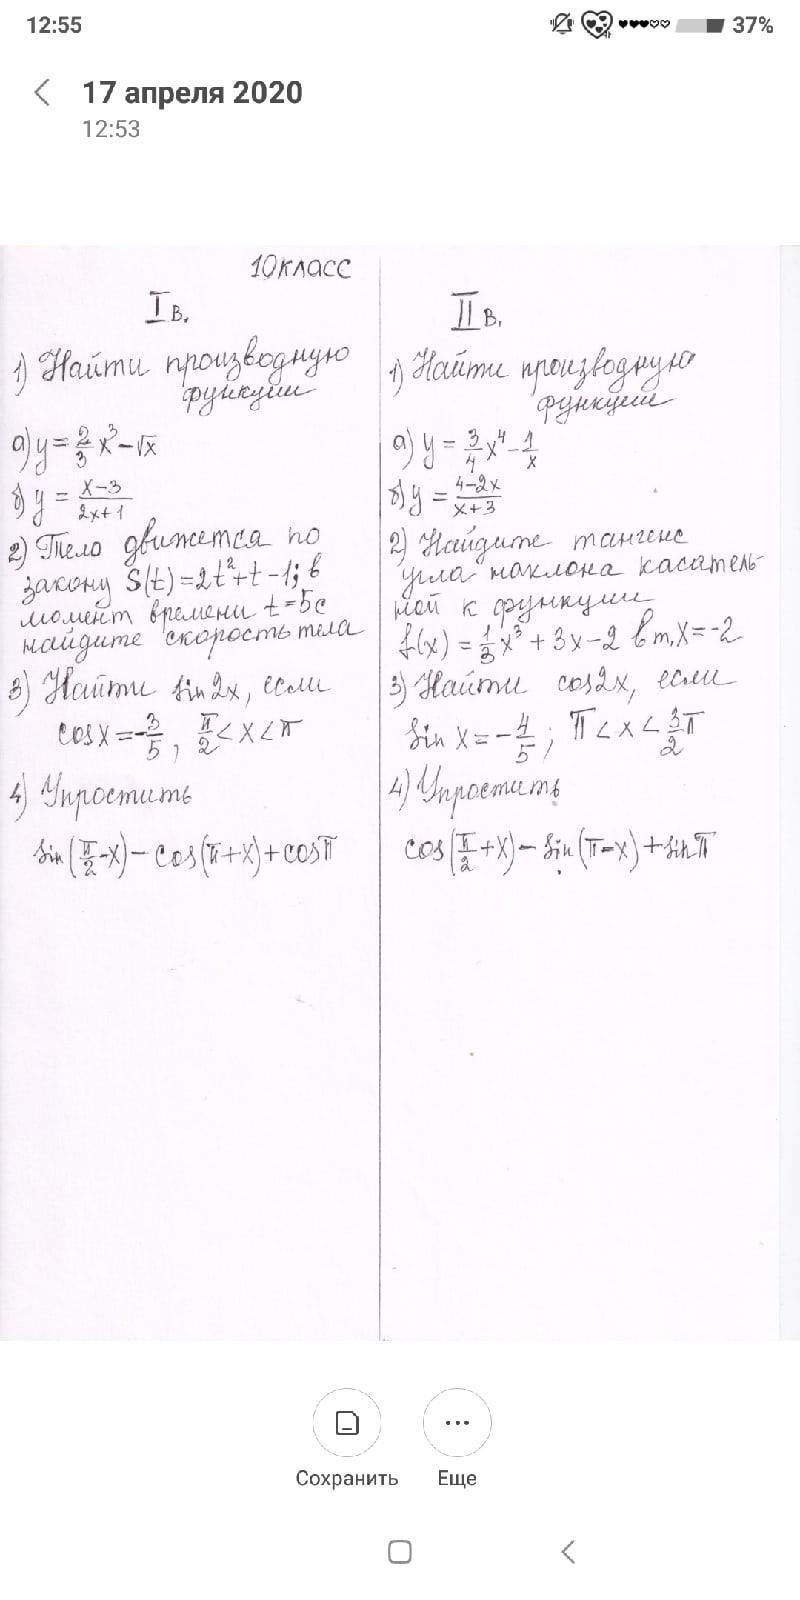 12:55
37%
17 апреля 2020
12:53
10 класс
I в.
1) Найти производную
функции
а) y = 2/3 x³ - √x
б) y = (x-3)/(2x+1)
2) Тело движется по
закону S(t) = 2t² + t - 1; в
момент времени t = 5c
найдите скорость тела
3) Найти sin 2x, если
cos x = -3/5, π/2 < x < π
4) Упростить
sin(π/2 - x) - cos(π + x) + cos π
II в.
1) Найти производную
функции
а) y = 3/4 x⁴ - 1/x
б) y = (4-2x)/(x+3)
2) Найдите тангенс
угла наклона касатель-
ной к функции
f(x) = 1/3 x³ + 3x - 2 в т. x = -2
3) Найти cos 2x, если
sin x = -4/5; π < x < 3/2 π
4) Упростить
cos(π/2 + x) - sin(π - x) + sin π
Сохранить
Еще